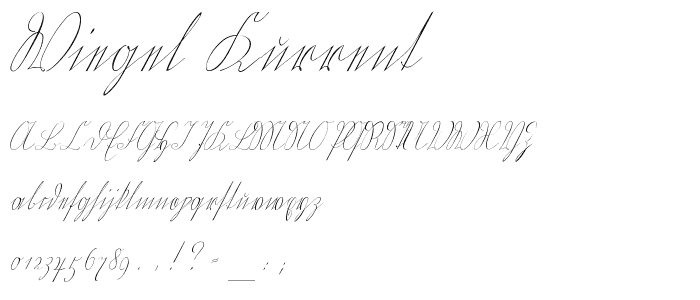 Wiegel Kurrent
ABCDEFGHIJKLMNOPQRSTUVWXYZ
abcdefghijklmnopqrstuvwxyz
0123456789 . , ! ? - _ : ;